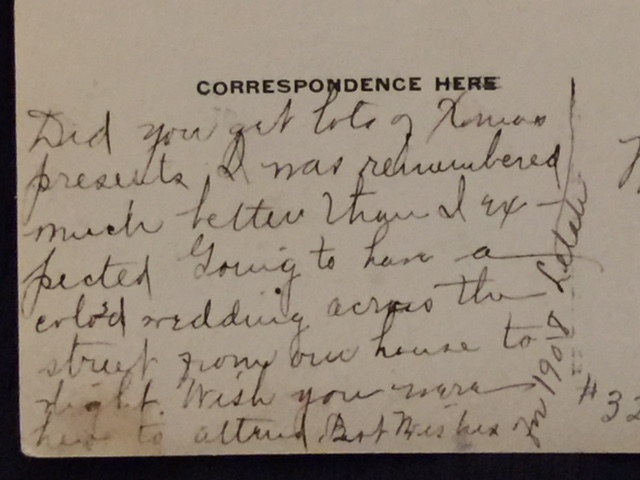 CORRESPONDENCE HERE
Did you get lots of Xmas
presents I was remembered
much better than I ex-
pected Going to have a
colo'd wedding across the
street from our house to
night. Wish you were
here to attend Best Wishes
for 1908
#32